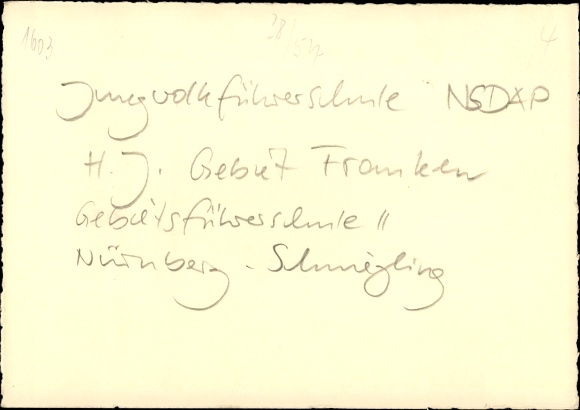 1603 38/572 4
Jungvolkführerschule NSDAP
H.J. Gebiet Franken
Gebietsführerschule II
Nürnberg - Schniegling